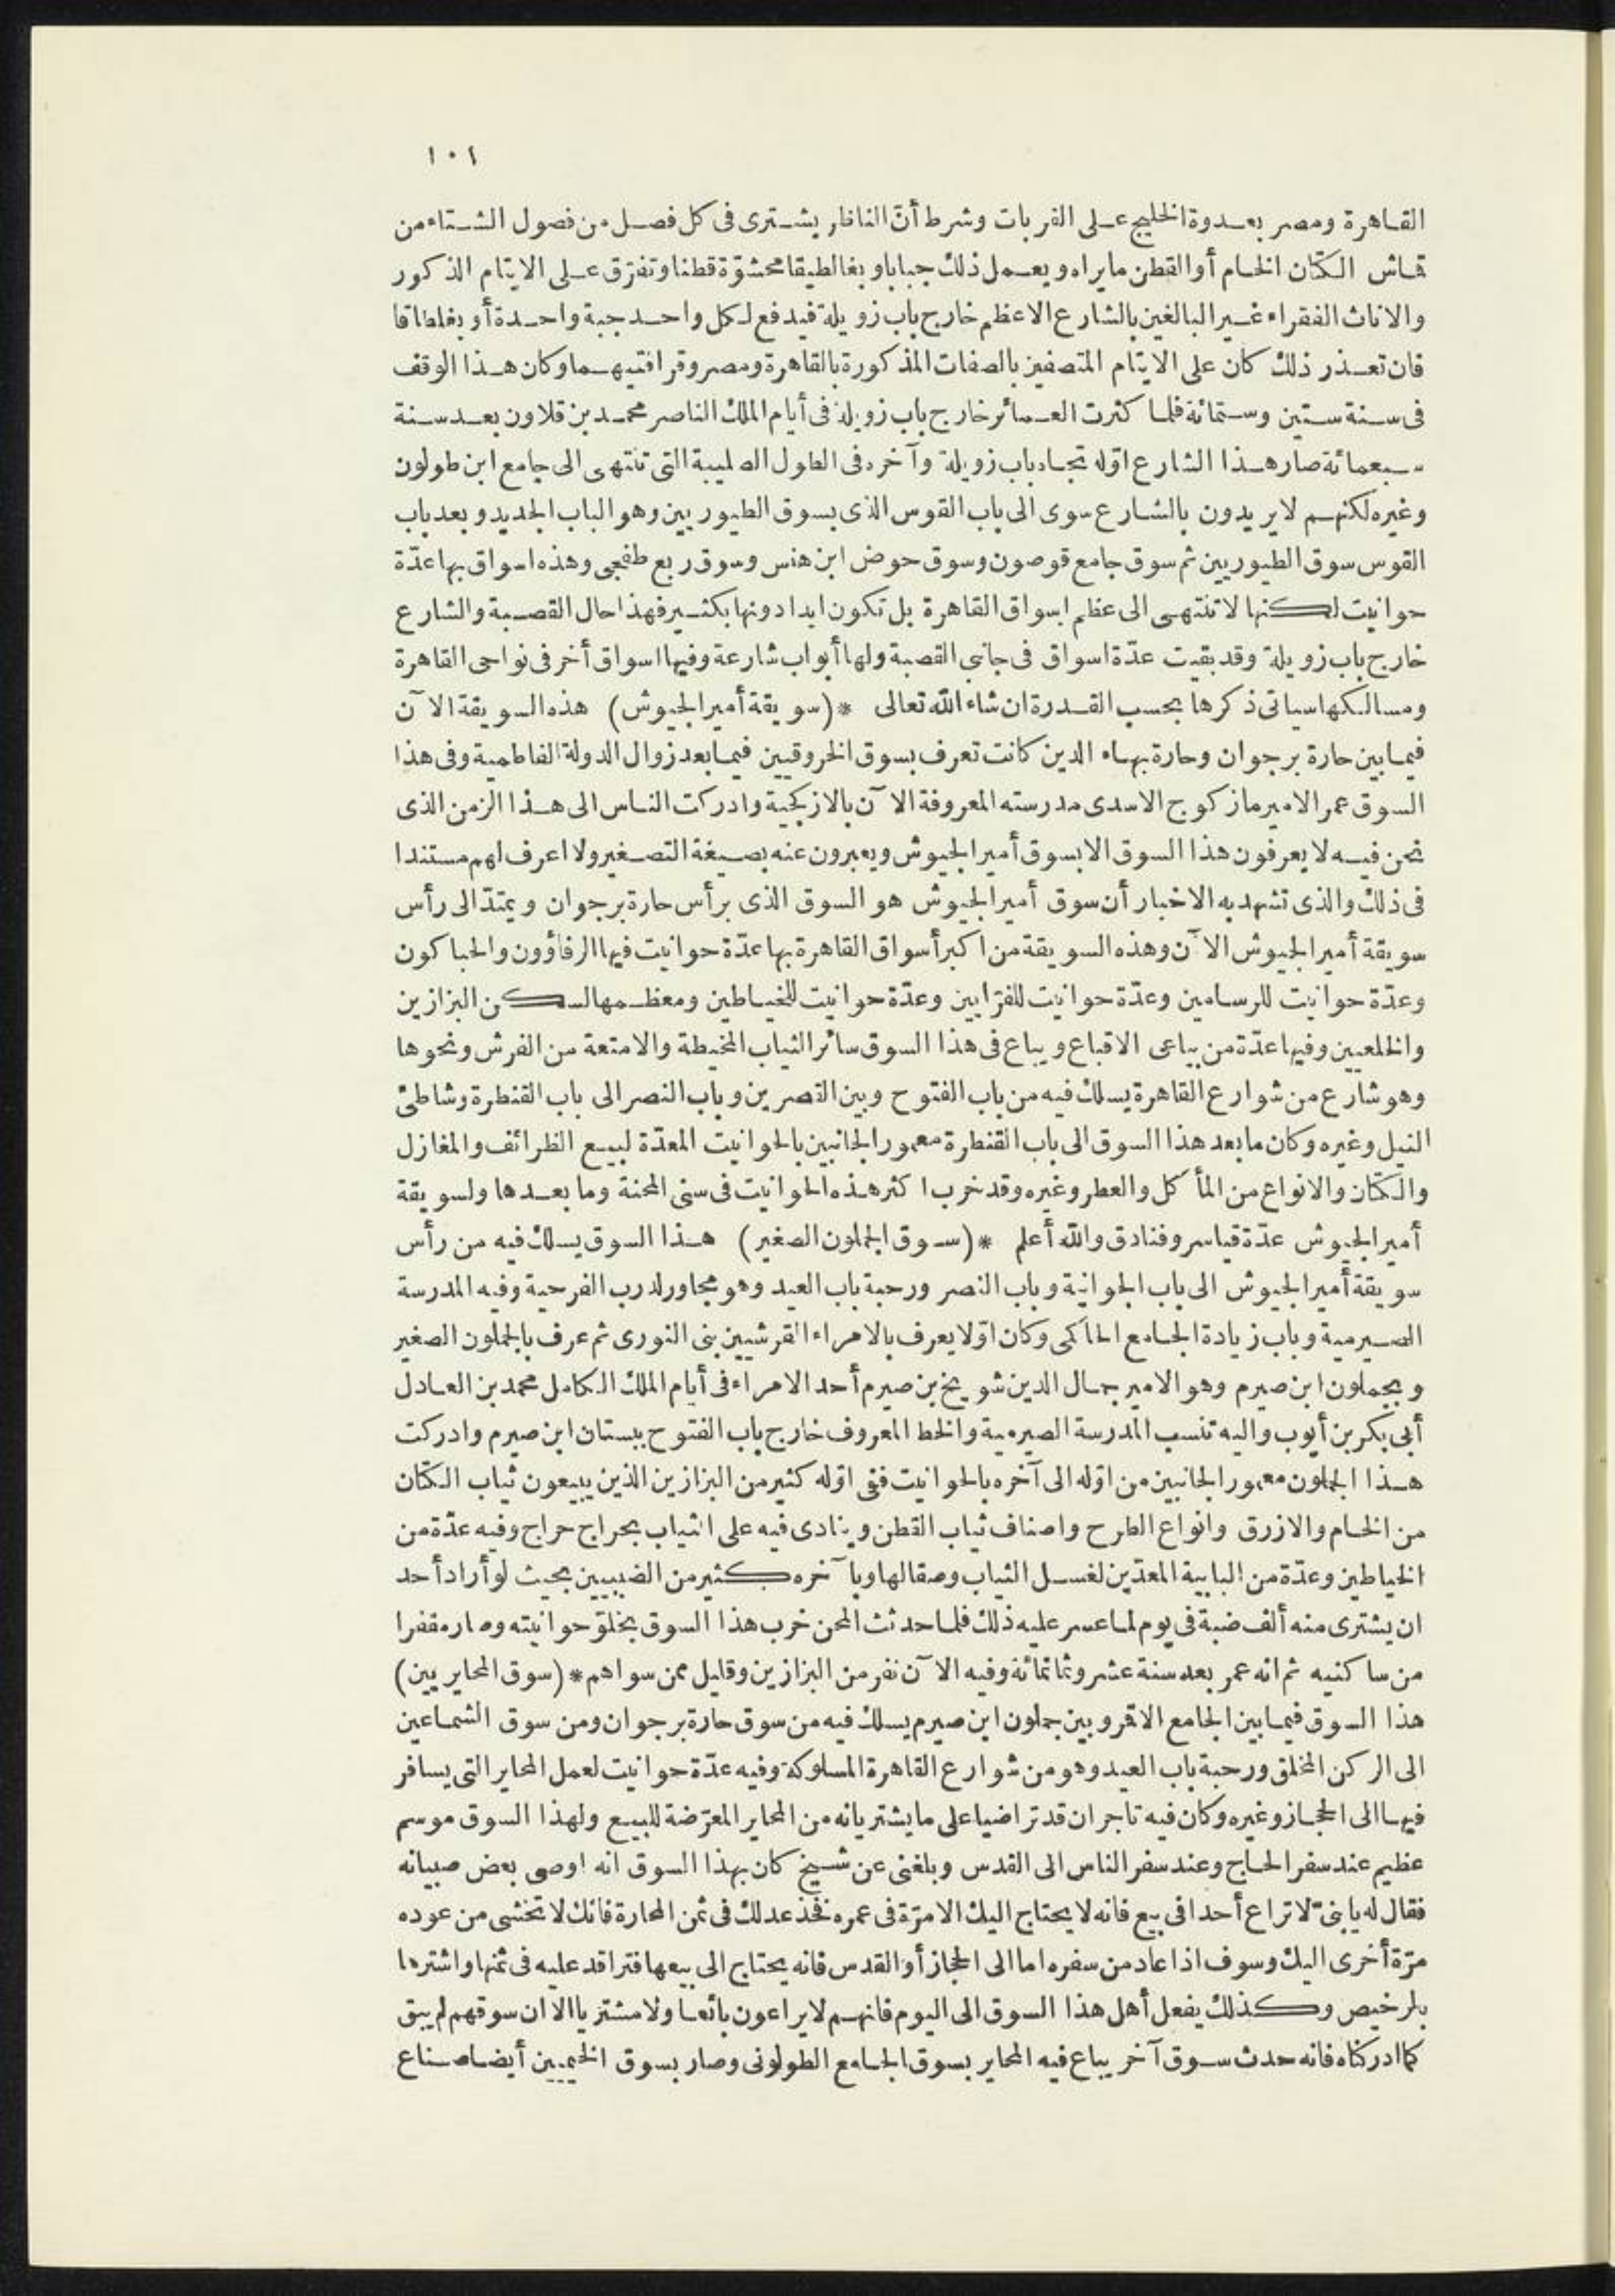 ١٠١
القاهرة ومصر بعدوة الخليج على القربات وشرط أنّ الناظر يشترى فى كل فصل من فصول الشتاء من
قماش الكتان الخام أو القطن مايراه ويعمل ذلك جبابا وبغالطيقا محشوّة قطنا وتفرّق على الايتام الذكور
والاناث الفقراء غير البالغين بالشارع الاعظم خارج باب زويلة فيدفع لكل واحد جبة واحدة أو بغلطاقا
فان تعذر ذلك كان على الايتام المتصفين بالصفات المذكورة بالقاهرة ومصر وقرافتيهما وكان هذا الوقف
فى سنة ستين وستمائة فلما كثرت العمائر خارج باب زويلة فى أيام الملك الناصر محمد بن قلاون بعد سنة
سبعمائة صار هذا الشارع اوّله تجاه باب زويلة وآخره فى الطول الصليبة التى تنتهى الى جامع ابن طولون
وغيره لكنهم لا يريدون بالشارع سوى الى باب القوس الذى بسوق الطيوريين وهو الباب الجديد وبعد باب
القوس سوق الطيوريين ثم سوق جامع قوصون وسوق حوض ابن هنس وسوق ربع طفجى وهذه اسواق بها عدّة
حوانيت لكنها لا تنتهى الى عظم اسواق القاهرة بل تكون ابدا دونها بكثير فهذا حال القصبة والشارع
خارج باب زويلة وقد بقيت عدّة اسواق فى جانبى القصبة ولها أبواب شارعة وفيها اسواق أخر فى نواحى القاهرة
ومسالكها سياتى ذكرها بحسب القدرة ان شاء الله تعالى * (سويقة أمير الجيوش) هذه السويقة الآن
فيما بين حارة برجوان وحارة بهاء الدين كانت تعرف بسوق الخروقيين فيما بعد زوال الدولة الفاطمية وفى هذا
السوق عمر الامير مازكوج الاسدى مدرسته المعروفة الآن بالازكجية وادركت الناس الى هذا الزمن الذى
نحن فيه لا يعرفون هذا السوق الا بسوق أمير الجيوش ويعبرون عنه بصيغة التصغير ولا اعرف لهم مستندا
فى ذلك والذى تشهد به الاخبار أن سوق أمير الجيوش هو السوق الذى برأس حارة برجوان ويمتدّ الى رأس
سويقة أمير الجيوش الآن وهذه السويقة من اكبر أسواق القاهرة بها عدّة حوانيت فيها الرفاؤون والحباكون
وعدّة حوانيت للرسامين وعدّة حوانيت للفرّايين وعدّة حوانيت للخياطين ومعظمها لسكن البزازين
والخلعيين وفيها عدّة من بياعى الاقباع ويباع فى هذا السوق سائر الثياب المخيطة والامتعة من الفرش ونحوها
وهو شارع من شوارع القاهرة يسلك فيه من باب الفتوح وبين القصرين وباب النصر الى باب القنطرة وشاطئ
النيل وغيره وكان ما بعد هذا السوق الى باب القنطرة معمور الجانبين بالحوانيت المعدّة لبيع الظرائف والمغازل
والكتان والانواع من المأكل والعطر وغيره وقد خرب اكثر هذه الحوانيت فى سنى المحنة وما بعدها ولسويقة
أمير الجيوش عدّة قياسر وفنادق والله أعلم * (سوق الجملون الصغير) هذا السوق يسلك فيه من رأس
سويقة أمير الجيوش الى باب الجوانية وباب النصر ورحبة باب العيد وهو مجاور لدرب الفرحية وفيه المدرسة
الصيرمية وباب زيادة الجامع الحاكمى وكان اوّلا يعرف بالامراء القرشيين بنى النورى ثم عرف بالجملون الصغير
وبجملون ابن صيرم وهو الامير جمال الدين شويخ بن صيرم أحد الامراء فى أيام الملك الكامل محمد بن العادل
أبى بكر بن أيوب واليه تنسب المدرسة الصيرمية والخط المعروف خارج باب الفتوح ببستان ابن صيرم وادركت
هذا الجملون معمور الجانبين من اوّله الى آخره بالحوانيت ففى اوّله كثير من البزازين الذين يبيعون ثياب الكتان
من الخام والازرق وانواع الطرح واصناف ثياب القطن وينادى فيه على الثياب بحراج حراج وفيه عدّة من
الخياطين وعدّة من البابية المعدّين لغسل الثياب وصقالها وبآخره كثير من الضببيين بحيث لو أراد أحد
ان يشترى منه ألف ضبة فى يوم لما عسر عليه ذلك فلما حدثت المحن خرب هذا السوق بخلوّ حوانيته وصار مقفرا
من ساكنيه ثم انه عمر بعد سنة عشر وثمانمائة وفيه الآن نفر من البزازين وقليل ممن سواهم * (سوق المحايريين)
هذا السوق فيما بين الجامع الاقمر وبين جملون ابن صيرم يسلك فيه من سوق حارة برجوان ومن سوق الشماعين
الى الركن المخلق ورحبة باب العيد وهو من شوارع القاهرة المسلوكة وفيه عدّة حوانيت لعمل المحاير التى يسافر
فيها الى الحجاز وغيره وكان فيه تاجران قد تراضيا على ما يشتريانه من المحاير المعرّضة للبيع ولهذا السوق موسم
عظيم عند سفر الحاج وعند سفر الناس الى القدس وبلغنى عن شيخ كان بهذا السوق انه اوصى بعض صبيانه
فقال له يا بنىّ لا تراع أحدا فى بيع فانه لا يحتاج اليك الا مرّة فى عمره فخذ عدلك فى ثمن المحارة فانك لا تخشى من عوده
مرّة أخرى اليك وسوف اذا عاد من سفره اما الى الحجاز أو القدس فانه يحتاج الى بيعها فتراقد عليه فى ثمنها واشترها
بالرخيص وكذلك يفعل أهل هذا السوق الى اليوم فانهم لا يراعون بائعا ولا مشتريا الا ان سوقهم لم يبق
كما ادركناه فانه حدث سوق آخر يباع فيه المحاير بسوق الجامع الطولونى وصار بسوق الخيميين أيضا صناع